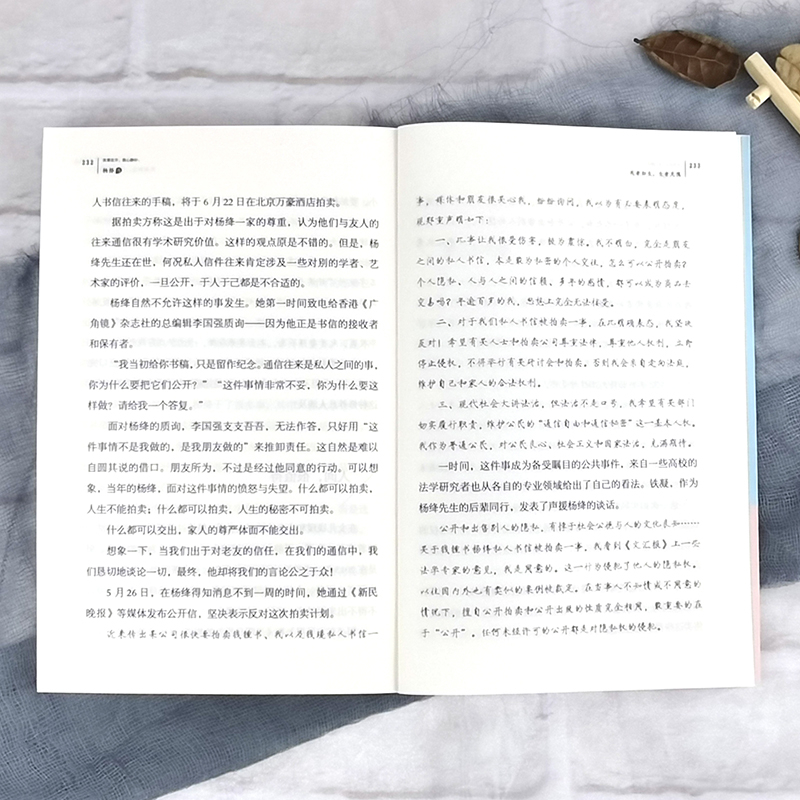 232
杨绛传
人书信往来的手稿，将于 6 月 22 日在北京万豪酒店拍卖。
据拍卖方称这是出于对杨绛一家的尊重，认为他们与友人的
往来通信很有学术研究价值。这样的观点原是不错的。但是，杨
绛先生还在世，何况私人信件往来肯定涉及一些对别的学者、艺术
家的评价，一旦公开，于人于己都是不合适的。
杨绛自然不允许这样的事发生。她第一时间致电给香港《广
角镜》杂志社的总编辑李国强质询——因为他正是书信的接收者
和保有者。
“我当初给你书稿，只是留作纪念。通信往来是私人之间的事，
你为什么要把它们公开？”“这件事情非常不妥，你为什么要这
样做？请给我一个答复。”
面对杨绛的质询，李国强支支吾吾，无法作答，只好用“这
件事情不是我做的，是我朋友做的”来推卸责任。这自然是难以
自圆其说的借口。朋友所为，不过是经过他同意的行动。可以想
象，当年的杨绛，面对这件事情的愤怒与失望。什么都可以拍卖，
人生不能拍卖；什么都可以拍卖，人生的秘密不可拍卖。
什么都可以交出，家人的尊严体面不能交出。
想象一下，当我们出于对老友的信任，在我们的通信中，我
们恳切地谈论一切，最终，他却将我们的言论公之于众！
5 月 26 日，在杨绛得知消息不到一周的时间，她通过《新民
晚报》等媒体发布公开信，坚决表示反对这次拍卖计划。
近来传出某公司很快要拍卖钱锺书、我以及钱瑗私人书信一
233
事，媒体和朋友很关心我，纷纷询问，我以为有必要表明态度，
现郑重声明如下：
一、此事让我很受伤害，极为震惊。我不明白，完全是朋友
之间的私人书信，本是最为私密的个人交往，怎么可以公开拍卖？
个人隐私、人与人之间的信赖、多年的感情，都可以成为商品去
交易吗？年逾百岁的我，思想上完全无法接受。
二、对于我们私人书信被拍卖一事，在此明确表态，我坚决
反对！希望有关人士和拍卖公司尊重法律，尊重他人权利，立即
停止侵权，不得举行有关研讨会和拍卖。否则我会亲自走向法庭，
维护自己和家人的合法权利。
三、现代社会大讲法治，但法治不是口号，我希望有关部门
切实履行职责，维护公民的“通信自由和通信秘密”这一基本人权。
我作为普通公民，对公民良心、社会正义和国家法治，充满期待。
一时间，这件事成为备受瞩目的公共事件，来自一些高校的
法学研究者也从各自的专业领域给出了自己的看法。铁凝，作为
杨绛先生的后辈同行，发表了声援杨绛的谈话。
公开和出售别人的隐私，有悖于社会公德与人的文化良知……
关于钱锺书杨绛私人书信被拍卖一事，我看到《文汇报》上一些
法学专家的意见，我是同意的。这一行为侵犯了他人的隐私权。
以往国内外也有类似的案例被裁定。在当事人不知情或不同意的
情况下，擅自公开拍卖和公开出版的性质完全相同，最重要的在
于“公开”。任何未经许可的公开都是对隐私权的侵犯。